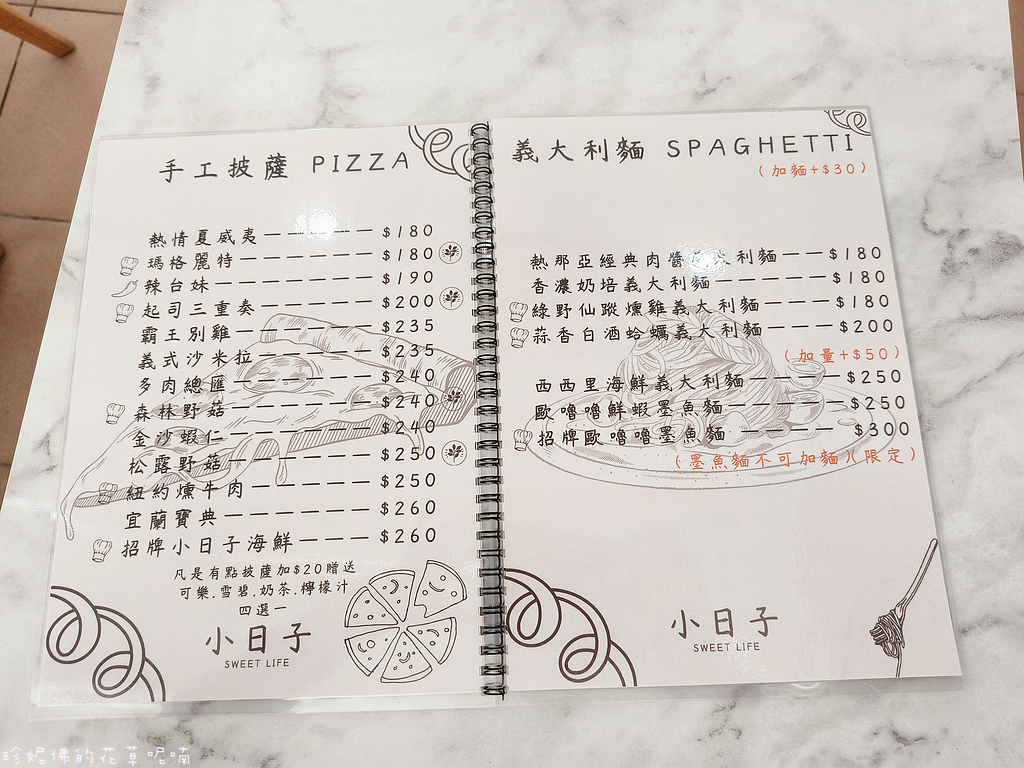 手工披薩 PIZZA
熱情夏威夷——————$180
瑪格麗特——————$180
辣台妹——————$190
起司三重奏—————$200
霸王別雞——————$235
義式沙米拉—————$235
多肉總匯——————$240
森林野菇——————$240
金沙蝦仁——————$240
松露野菇——————$250
紐約燻牛肉—————$250
宜蘭寶典——————$260
招牌小日子海鮮———$260
凡是有點披薩加$20贈送
可樂.雪碧.奶茶.檸檬汁
四選一
小日子
SWEET LIFE
義大利麵 SPAGHETTI
(加麵+$30)
熱那亞經典肉醬 大利麵——$180
香濃奶培義大利麵————$180
綠野仙蹤燻雞義大利麵———$180
蒜香白酒蛤蠣義大利麵———$200
(加量+$50)
西西里海鮮義大利麵————$250
歐嚕嚕鮮蝦墨魚麵—————$250
招牌歐嚕嚕墨魚麵—————$300
(墨魚麵不可加麵)(限定)
小日子
SWEET LIFE
珍妮佛的花草呢喃